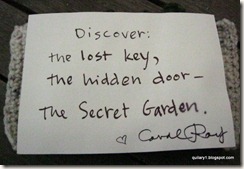 Discover:
the lost key,
the hidden door—
The Secret Garden.
♡ Carol Roy
quilary1.blogspot.com